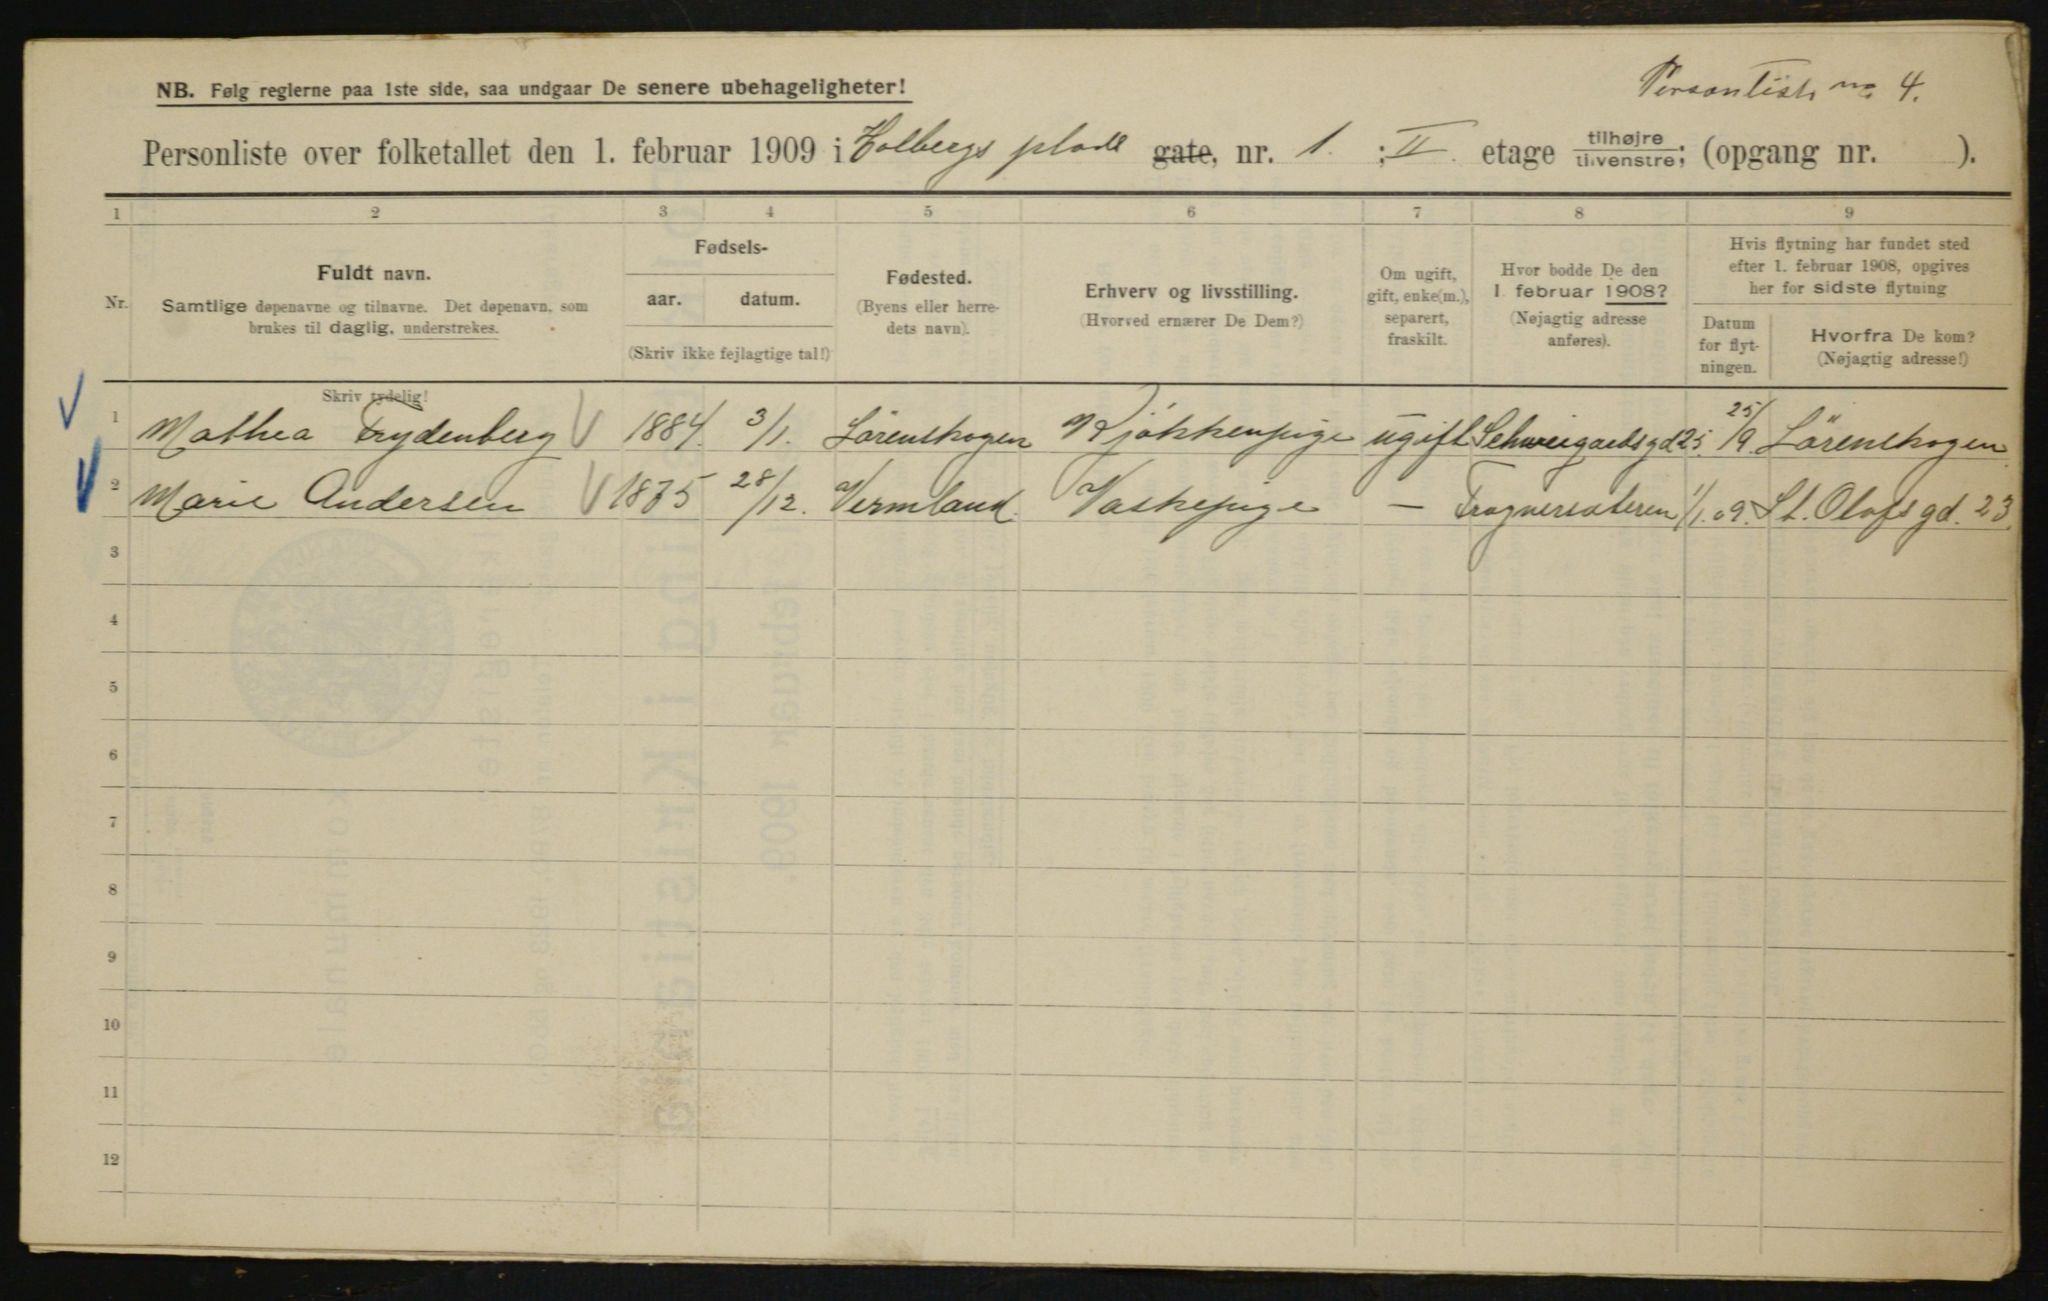 NB. Følg reglerne paa 1ste side, saa undgaar De senere ubehageligheter!
Personliste no 4.
Personliste over folketallet den 1. februar 1909 i Holbergs plads gate, nr. 1. ; II. etage tilhøjre tilvenstre; (opgang nr. ).
1 2 3 4 5 6 7 8 9
Nr.
Fuldt navn.
Samtlige døpenavne og tilnavne. Det døpenavn, som
brukes til daglig, understrekes.
Fødsels-
aar. datum.
(Skriv ikke fejlagtige tal!)
Fødested.
(Byens eller herre-
dets navn).
Erhverv og livsstilling.
(Hvorved ernærer De Dem?)
Om ugift,
gift, enke(m.),
separert,
fraskilt.
Hvor bodde De den
1. februar 1908?
(Nøjagtig adresse
anføres).
Hvis flytning har fundet sted
efter 1. februar 1908, opgives
her for sidste flytning
Datum
for flyt-
ningen.
Hvorfra De kom?
(Nøjagtig adresse!)
Skriv tydelig!
1 Mathea Frydenberg 1884. 3/1. Lörenskogen Kjökkenpige ugift Schweigaardsgd 25. 25/9. Lörenskogen
2 Marie Andersen 1875 28/12. Vermland. Vaskepige — Frognersæteren 1/1.09. St. Olafsgd. 23.
3
4
5
6
7
8
9
10
11
12